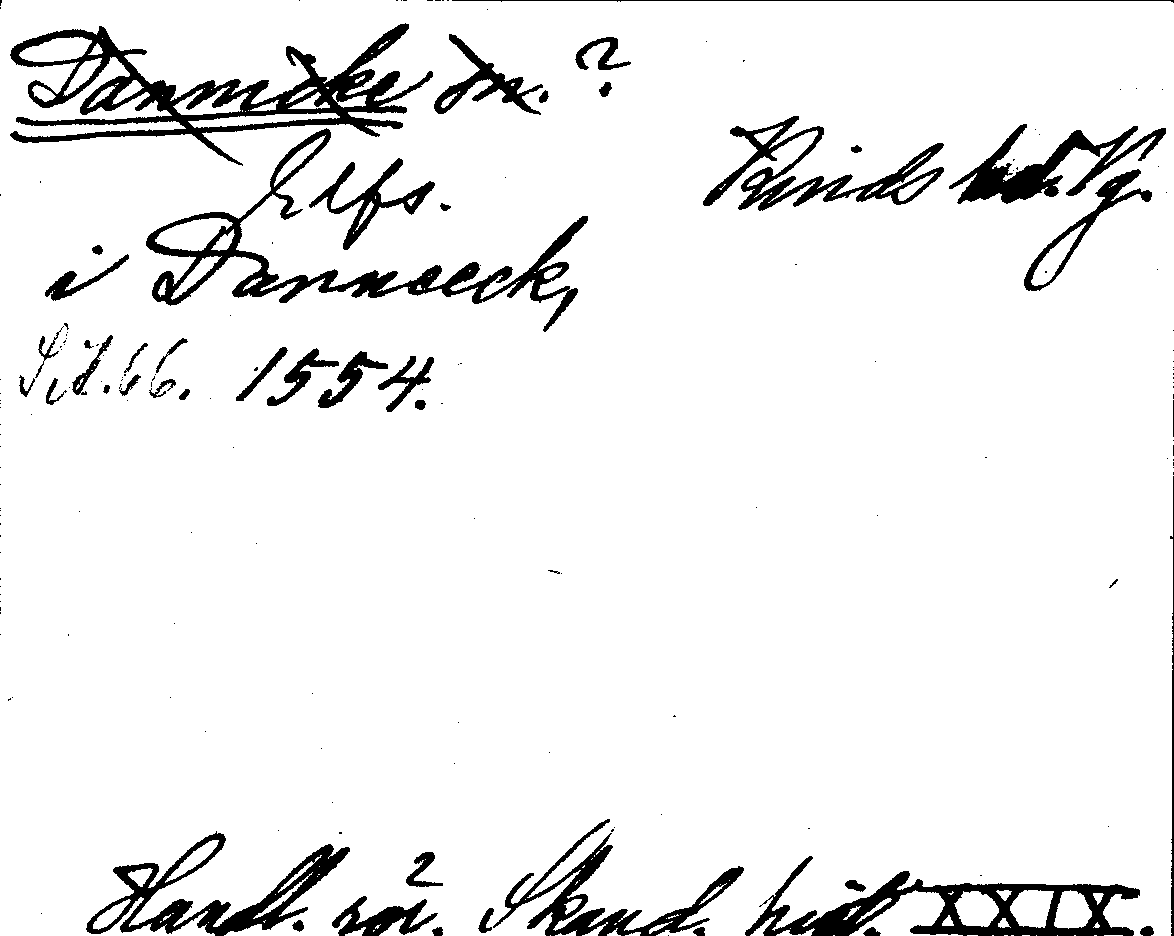 Dannike sn. ?
Kinds hd. Vg.
Elfs.
i Danneeck,
Sid. 66. 1554.
Handl. rör. Skand. hist. XXIX.